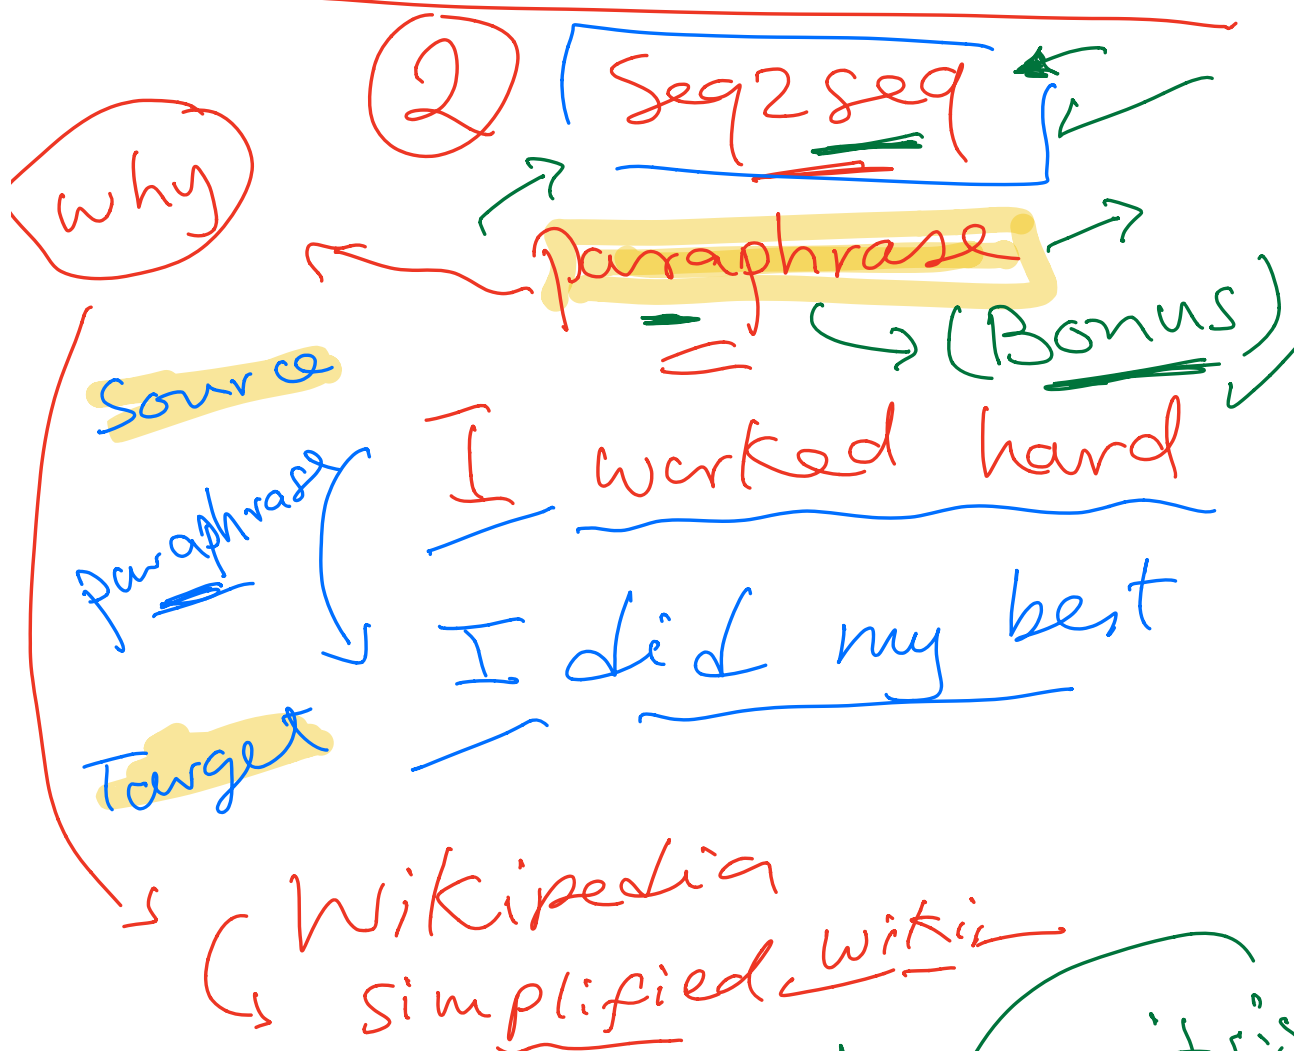 2 Seq2Seq
why
paraphrase
(Bonus)
Source
I worked hard
paraphrase
I did my best
Target
Wikipedia
simplified wiki